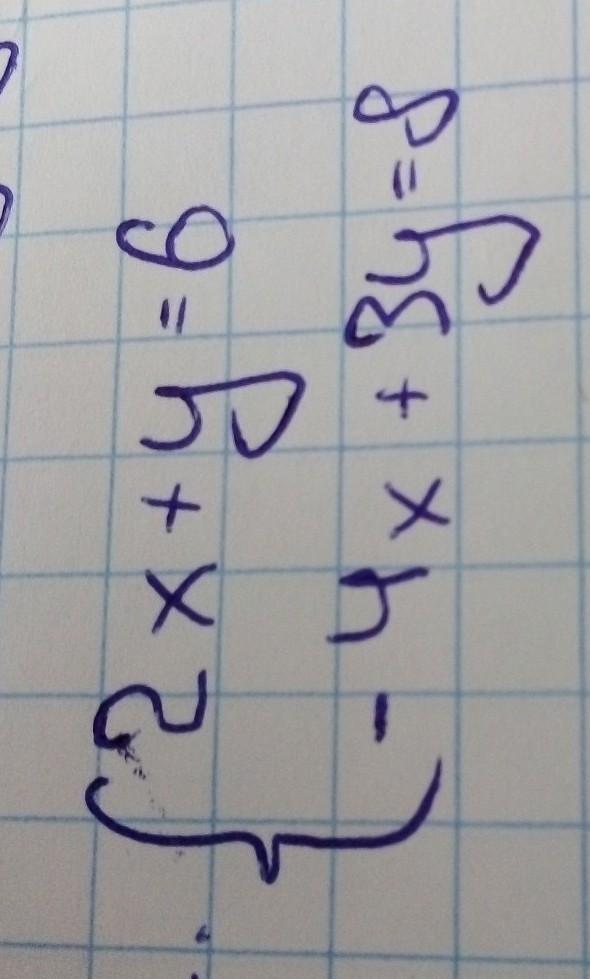 2x+y=6
-4x+3y=8